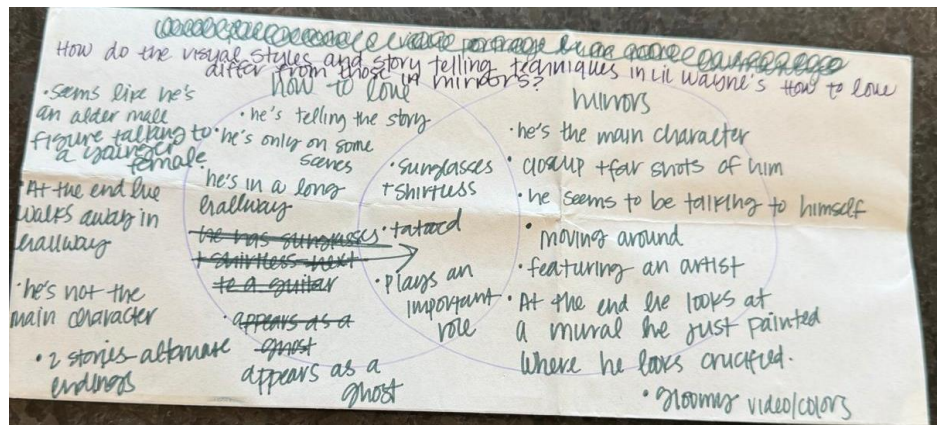 How do the visual styles and story telling techniques in lil wayne's How to love
differ from those in mirrors?
how to love
• seems like he's
an older male
figure talking to
a younger
female
• At the end he
walks away in
hallway
• he's not the
main character
• 2 stories alternate
endings
• he's telling the story
• he's only on some
scenes
• he's in a long
hallway
he has sunglasses
+ shirtless next
to a guitar
• appears as a
ghost
appears as a
ghost
• sunglasses
+ shirtless
• tatood
• plays an
important
role
mirrors
• he's the main character
• closeup + far shots of him
• he seems to be talking to himself
• moving around
• featuring an artist
• At the end he looks at
a mural he just painted
where he looks crucified.
• gloomy video/colors